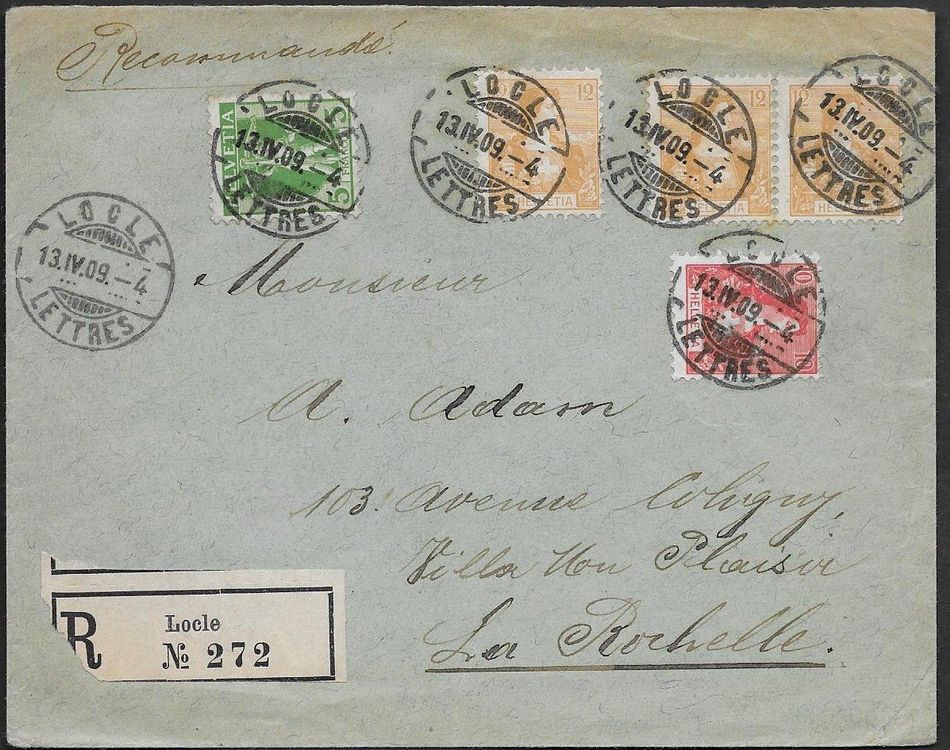 Recommandé.
HELVETIA 5 FRANCO 5
LOCLE
13.IV.09.–4
LETTRES
12
HELVETIA
LOCLE
13.IV.09.–4
LETTRES
12
HELVETIA
LOCLE
13.IV.09.–4
LETTRES
12
HELVETIA
LOCLE
13.IV.09.–4
LETTRES
LOCLE
13.IV.09.–4
LETTRES
10 HELVETIA 10
LOCLE
13.IV.09.–4
LETTRES
Monsieur
A. Adam
103 Avenue Coligny,
Villa Mon Plaisir
La Rochelle.
R Locle
№ 272